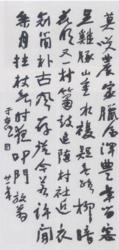 莫笑農家臘酒渾豐年留客
足雞豚山重水複疑無路柳暗
花明又一村簫鼓追隨春社近衣
冠簡朴古風存從今若許閒
乘月拄杖無時夜叩門放翁